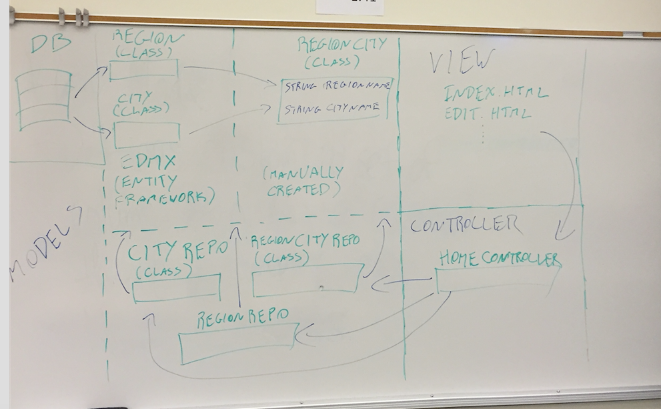 DB
REGION
(CLASS)
CITY
(CLASS)
EDMX
(ENTITY
FRAMEWORK)
REGIONCITY
(CLASS)
STRING REGIONNAME
STRING CITYNAME
(MANUALLY
CREATED)
VIEW
INDEX.HTML
EDIT.HTML
MODELS
CITY REPO
(CLASS)
REGIONCITY REPO
(CLASS)
REGION REPO
CONTROLLER
HOMECONTROLLER